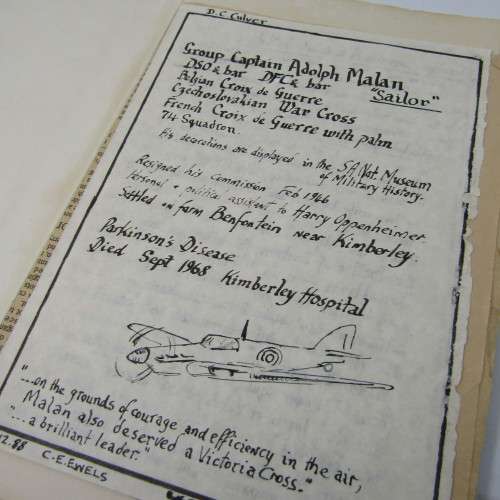 D.C Culver
Group Captain Adolph Malan
DSO & bar DFC & bar "Sailor"
Belgian Croix de Guerre
Czechoslovakian War Cross
French Croix de Guerre with palm
74 Squadron.
His decorations are displayed in the SA Nat. Museum
of Military History.
Resigned his Commission Feb 1946
Personal & political assistant to Harry Oppenheimer.
Settled on farm Benfontein near Kimberley.
Parkinson's Disease
Died Sept 1968 Kimberley Hospital
"...on the grounds of courage and efficiency in the air,
Malan also deserved a Victoria Cross."
"...a brilliant leader."
12.88 C.E. EWELS